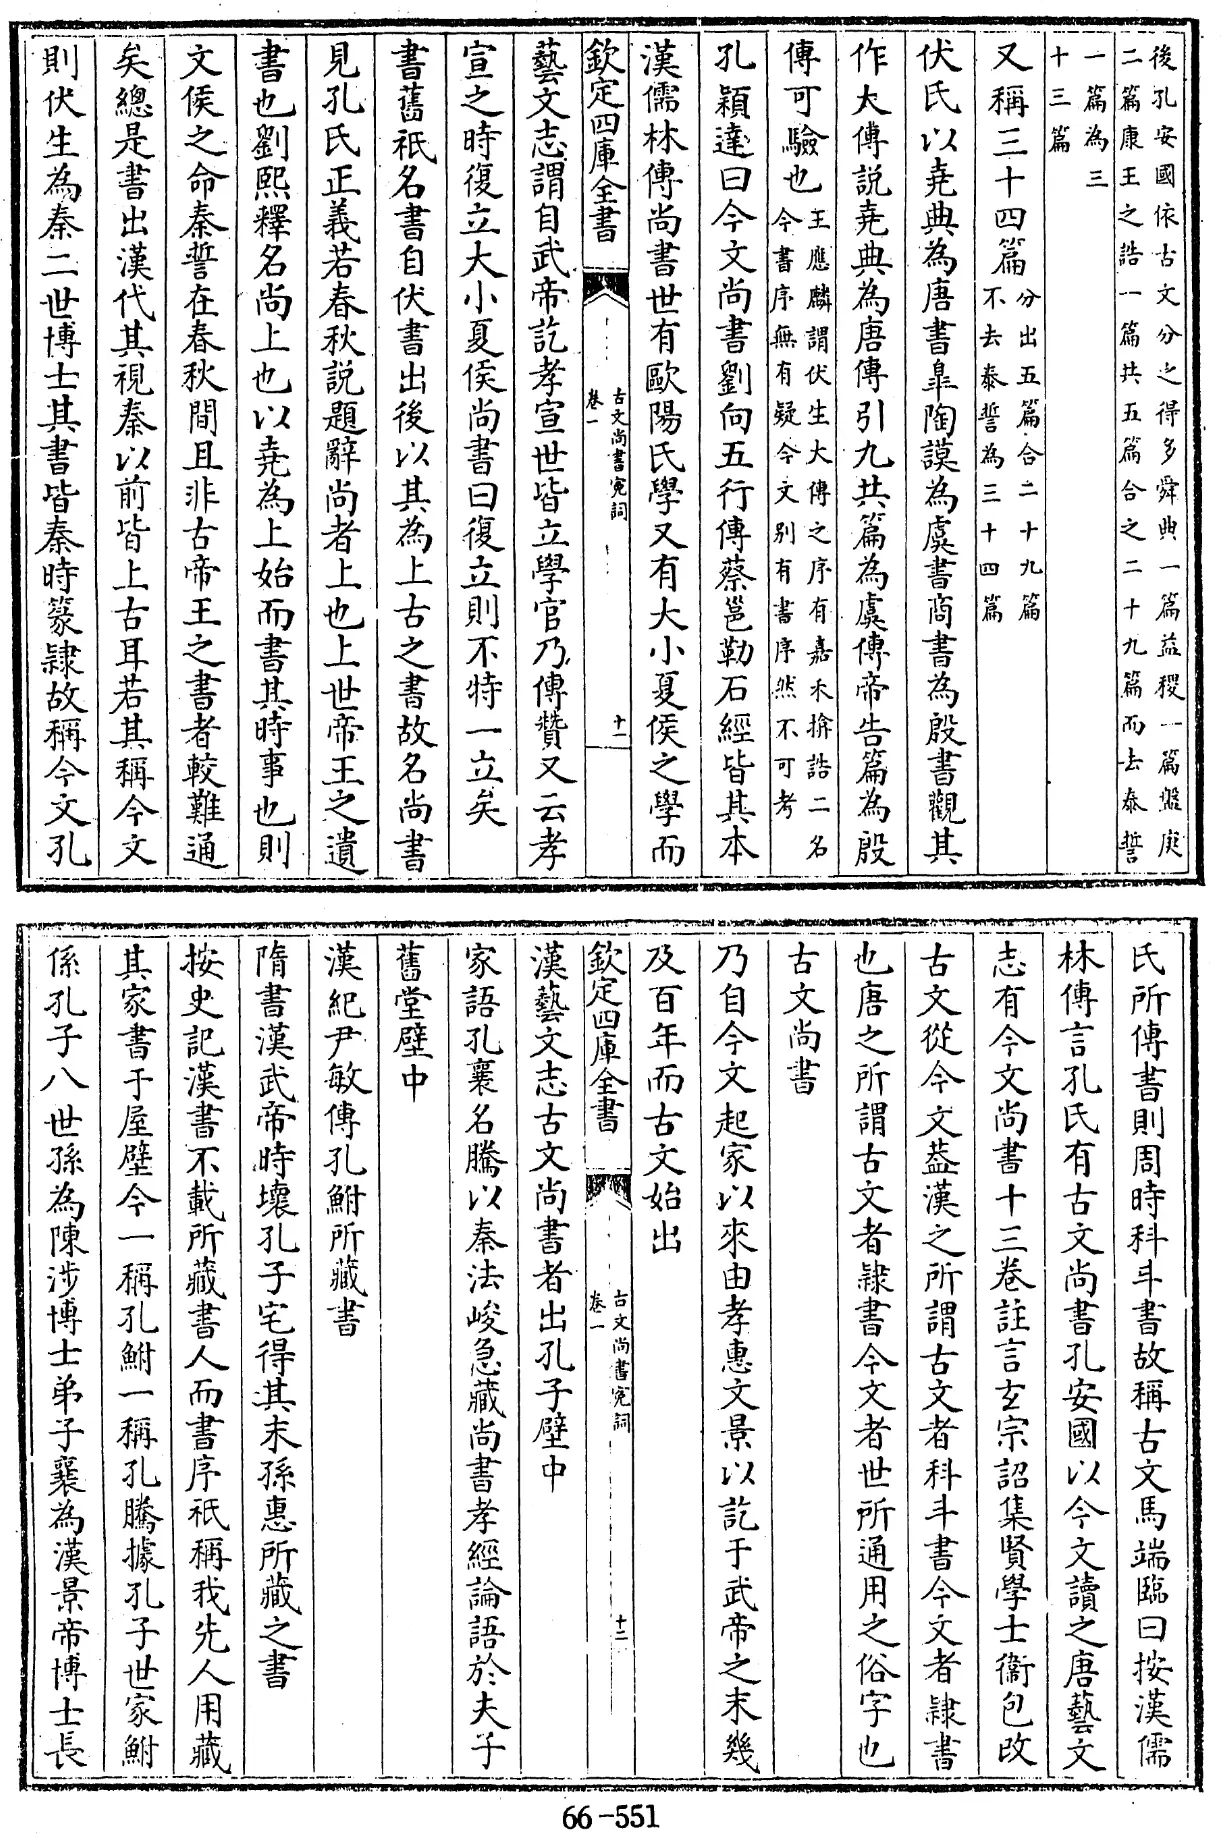 後孔安國依古文分之得多舜典一篇益稷一篇盤庚
二篇康王之誥一篇共五篇合之二十九篇而去泰誓
一篇為三
十三篇
又稱三十四篇
分出五篇合二十九篇
不去泰誓為三十四篇
伏氏以堯典為唐書臯陶謨為虞書商書為殷書觀其
作大傳説堯典為唐傳引九共篇為虞傳帝告篇為殷
傳可驗也
王應麟謂伏生大傳之序有嘉禾揜誥二名
今書序無有疑今文别有書序然不可考
孔穎達曰今文尚書劉向五行傳蔡邕勒石經皆其本
漢儒林傳尚書世有歐陽氏學又有大小夏侯之學而
欽定四庫全書
古文尚書寃詞
卷一
十一
藝文志謂自武帝訖孝宣世皆立學官乃傳贊又云孝
宣之時復立大小夏侯尚書曰復立則不特一立矣
書舊祇名書自伏書出後以其為上古之書故名尚書
見孔氏正義若春秋説題辭尚者上也上世帝王之遺
書也劉熙釋名尚上也以堯為上始而書其時事也則
文侯之命秦誓在春秋間且非古帝王之書者較難通
矣總是書出漢代其視秦以前皆上古耳若其稱今文
則伏生為秦二世博士其書皆秦時篆隸故稱今文孔
氏所傳書則周時科斗書故稱古文馬端臨曰按漢儒
林傳言孔氏有古文尚書孔安國以今文讀之唐藝文
志有今文尚書十三卷註言玄宗詔集賢學士衞包改
古文從今文葢漢之所謂古文者科斗書今文者隸書
也唐之所謂古文者隸書今文者世所通用之俗字也
古文尚書
乃自今文起家以來由孝惠文景以訖于武帝之末幾
及百年而古文始出
欽定四庫全書
古文尚書寃詞
卷一
十二
漢藝文志古文尚書者出孔子壁中
家語孔襄名騰以秦法峻急藏尚書孝經論語於夫子
舊堂壁中
漢紀尹敏傳孔鮒所藏書
隋書漢武帝時壞孔子宅得其末孫惠所藏之書
按史記漢書不載所藏書人而書序祇稱我先人用藏
其家書于屋壁今一稱孔鮒一稱孔騰據孔子世家鮒
係孔子八世孫為陳涉博士弟子襄為漢景帝博士長
66-551